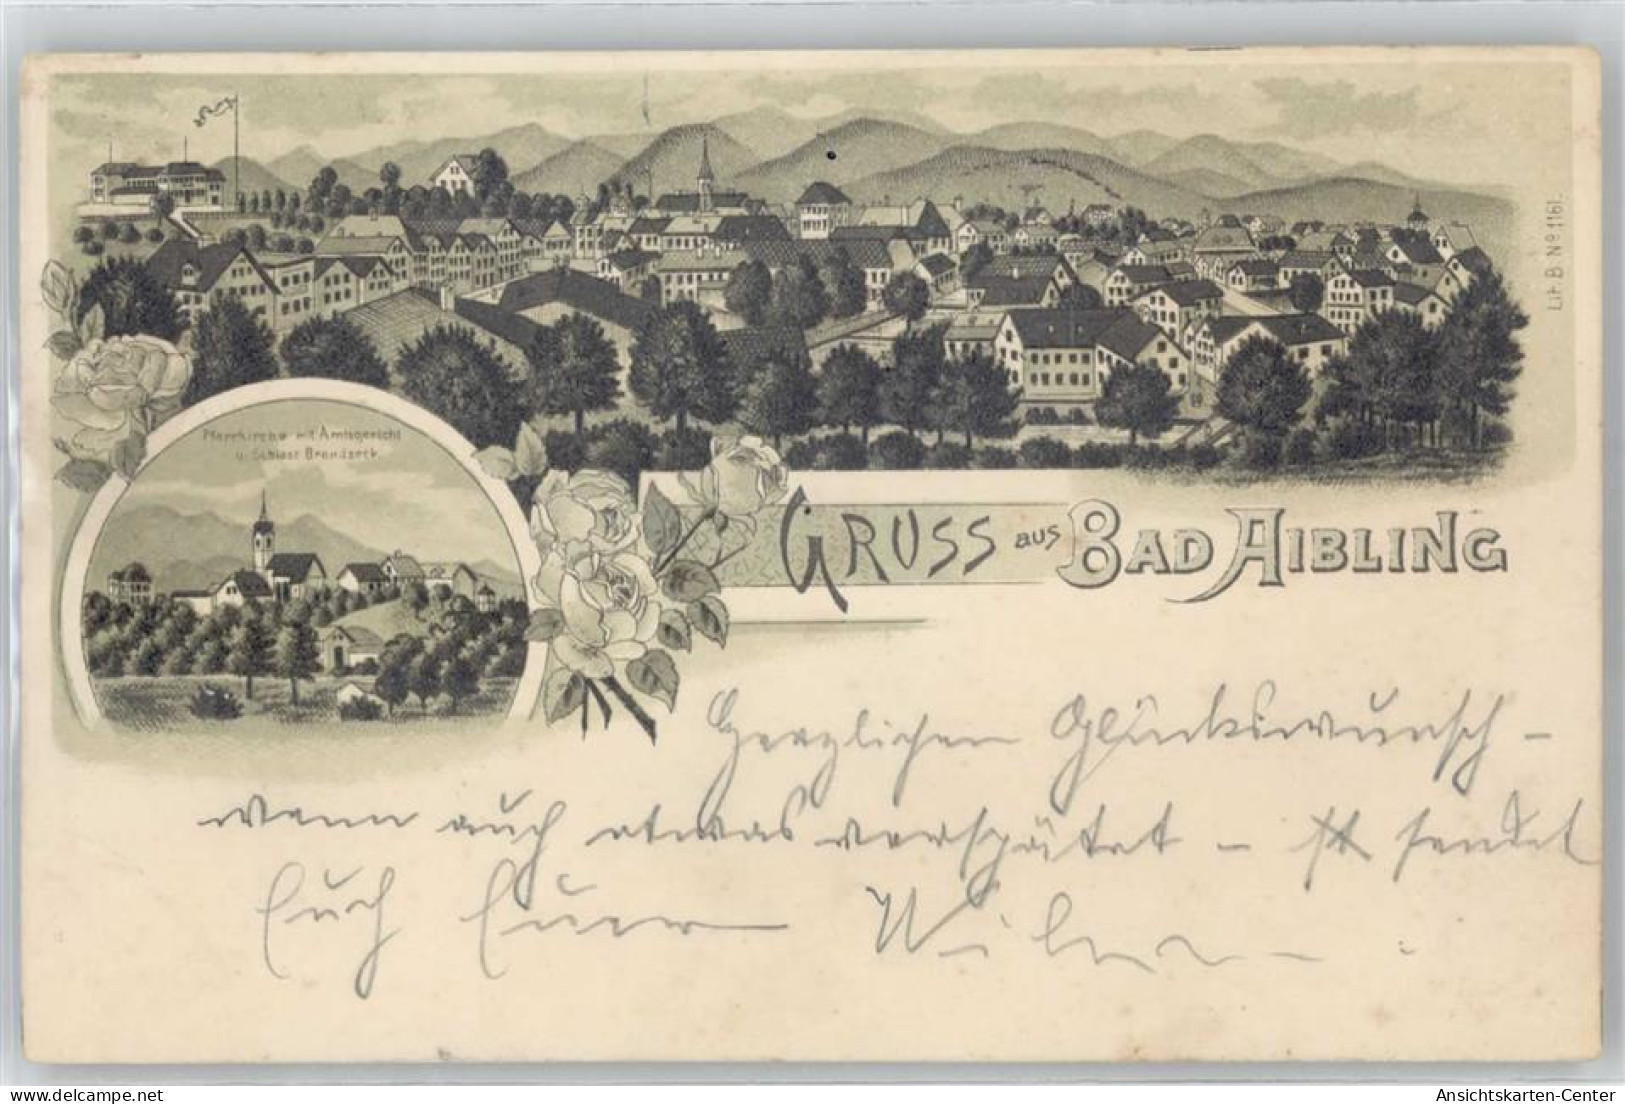 Lit. B. No. 1161.
Pfarrkirche mit Amtsgericht
u. Schloss Brandseck
GRUSS aus BAD AIBLING
Herzlichen Glückswunsch -
wenn auch etwas verspätet - sendet
Euch Euer
delcampe.net
Ansichtskarten-Center